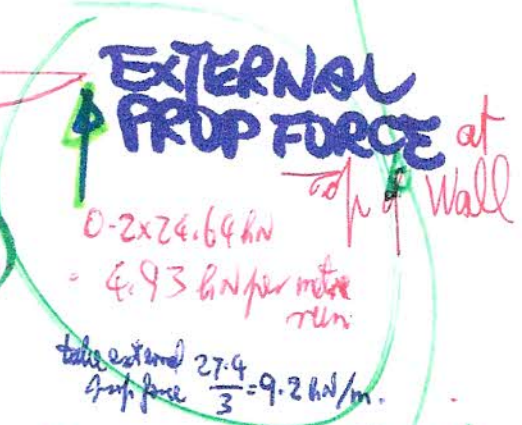 EXTERNAL
PROP FORCE at
Top of Wall
0.2x24.64 kN
= 4.93 kN per metre
run
take external 27.4
prop force 3 = 9.2 kN/m.